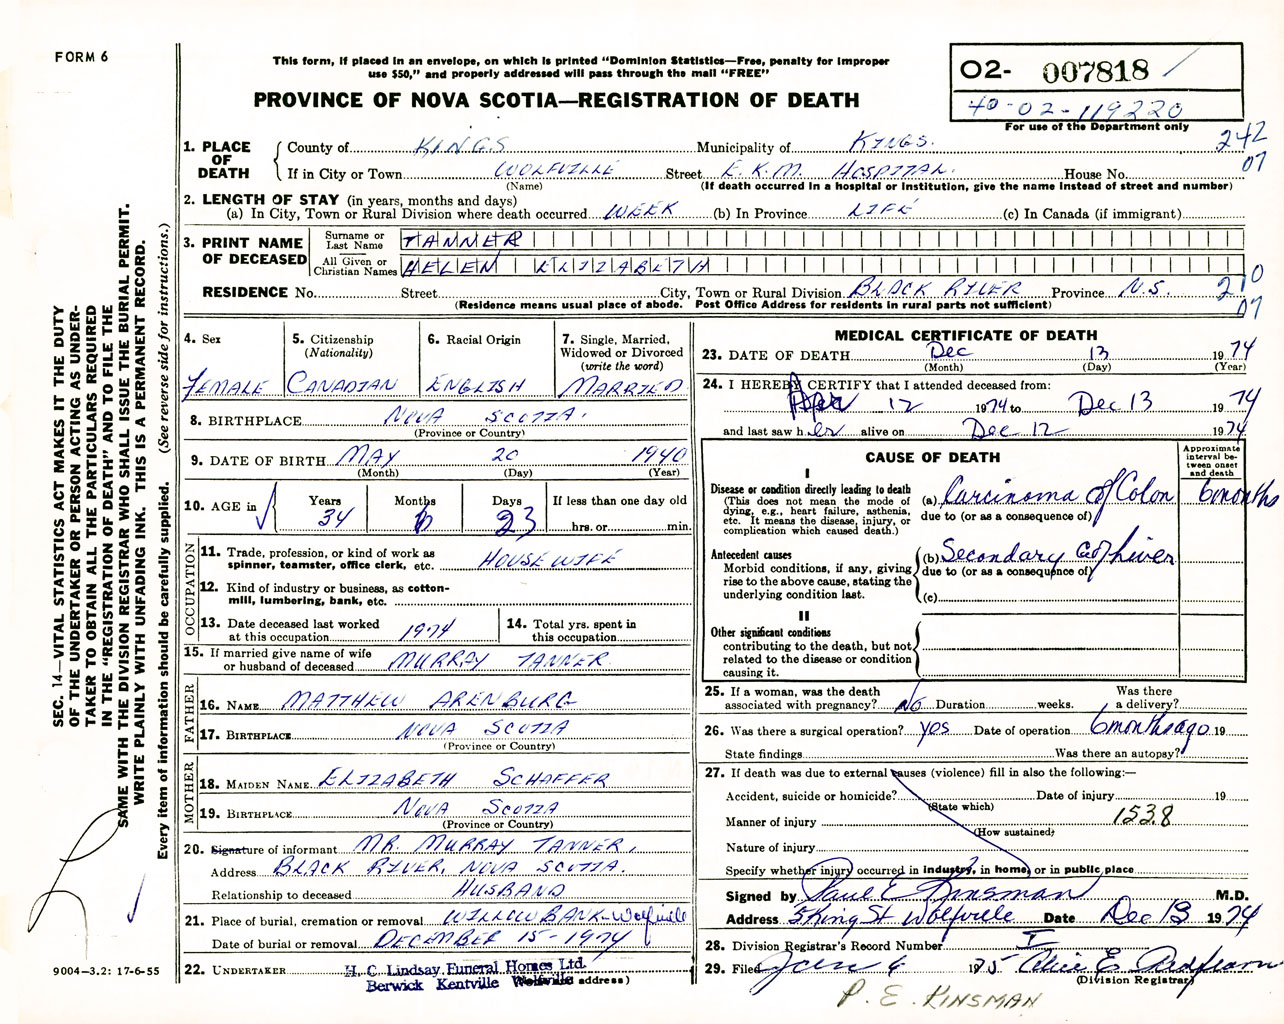 FORM 6
This form, if placed in an envelope, on which is printed "Dominion Statistics—Free, penalty for improper
use $50," and properly addressed will pass through the mail "FREE"
PROVINCE OF NOVA SCOTIA—REGISTRATION OF DEATH
O2- 007818
40-02-119220
For use of the Department only
242
07
1. PLACE OF DEATH
County of KINGS Municipality of KINGS.
If in City or Town WOLFVILLE Street E.K.M. HOSPITAL. House No.
(Name) (If death occurred in a hospital or institution, give the name instead of street and number)
2. LENGTH OF STAY (in years, months and days)
(a) In City, Town or Rural Division where death occurred WEEK (b) In Province LIFE (c) In Canada (if immigrant)
3. PRINT NAME OF DECEASED
Surname or Last Name TANNER
All Given or Christian Names HELEN ELIZABETH
RESIDENCE No. Street City, Town or Rural Division BLACK RIVER Province N.S.
(Residence means usual place of abode. Post Office Address for residents in rural parts not sufficient)
210
07
4. Sex
FEMALE
5. Citizenship
(Nationality)
CANADIAN
6. Racial Origin
ENGLISH
7. Single, Married,
Widowed or Divorced
(write the word)
MARRIED
8. BIRTHPLACE NOVA SCOTIA.
(Province or Country)
9. DATE OF BIRTH MAY 20 1940
(Month) (Day) (Year)
10. AGE in
Years Months Days If less than one day old
34 6 23 hrs. or min.
OCCUPATION
11. Trade, profession, or kind of work as
spinner, teamster, office clerk, etc. HOUSEWIFE
12. Kind of industry or business, as cotton-
mill, lumbering, bank, etc.
13. Date deceased last worked
at this occupation 1974
14. Total yrs. spent in
this occupation
15. If married give name of wife
or husband of deceased MURRAY TANNER
FATHER
16. NAME MATTHEW ARENBURG
17. BIRTHPLACE NOVA SCOTIA
(Province or Country)
MOTHER
18. MAIDEN NAME ELIZABETH SCHAFFER
19. BIRTHPLACE NOVA SCOTIA
(Province or Country)
20. Signature of informant MR. MURRAY TANNER,
Address BLACK RIVER, NOVA SCOTIA.
Relationship to deceased HUSBAND
21. Place of burial, cremation or removal WILLOWBANK-Wolfville
Date of burial or removal DECEMBER 15-1974
22. UNDERTAKER H. C. Lindsay Funeral Homes Ltd.
Berwick Kentville Wolfville address)
MEDICAL CERTIFICATE OF DEATH
23. DATE OF DEATH Dec 13 1974
(Month) (Day) (Year)
24. I HEREBY CERTIFY that I attended deceased from:
12 1974 to Dec 13 1974
and last saw her alive on Dec 12 1974
CAUSE OF DEATH
Approximate
interval be-
tween onset
and death
I
Disease or condition directly leading to death
(This does not mean the mode of
dying, e.g., heart failure, asthenia,
etc. It means the disease, injury, or
complication which caused death.)
(a) Carcinoma of Colon 6 months
due to (or as a consequence of)
Antecedent causes
Morbid conditions, if any, giving
rise to the above cause, stating the
underlying condition last.
(b) Secondary Ca of Liver
due to (or as a consequence of)
(c)
II
Other significant conditions
contributing to the death, but not
related to the disease or condition
causing it.
25. If a woman, was the death
associated with pregnancy? No Duration weeks. Was there
a delivery?
26. Was there a surgical operation? yes Date of operation 6 months ago 19
State findings Was there an autopsy?
27. If death was due to external causes (violence) fill in also the following:—
Accident, suicide or homicide? Date of injury 19
(State which)
Manner of injury 1538
(How sustained)
Nature of injury
Specify whether injury occurred in industry, in home, or in public place
Signed by Paul E Kinsman M.D.
Address 5 King St Wolfville Date Dec 13 1974
28. Division Registrar's Record Number I
29. Filed Jan 6 1975 Alice E
(Division Registrar)
P. E. KINSMAN
SEC. 14—VITAL STATISTICS ACT MAKES IT THE DUTY
OF THE UNDERTAKER OR PERSON ACTING AS UNDER-
TAKER TO OBTAIN ALL THE PARTICULARS REQUIRED
IN THE "REGISTRATION OF DEATH" AND TO FILE THE
SAME WITH THE DIVISION REGISTRAR WHO SHALL ISSUE THE BURIAL PERMIT.
WRITE PLAINLY WITH UNFADING INK. THIS IS A PERMANENT RECORD.
Every item of information should be carefully supplied. (See reverse side for instructions.)
9004—3.2: 17-6-55